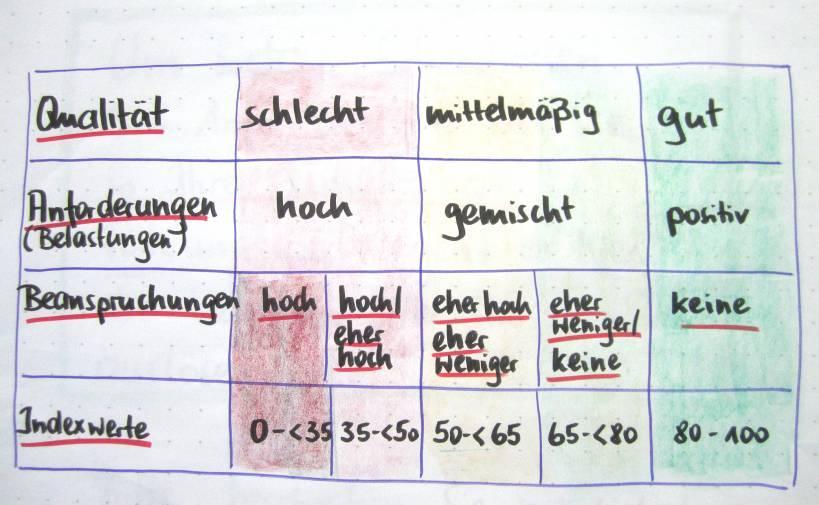 Qualität schlecht mittelmäßig gut
Anforderungen hoch gemischt positiv
(Belastungen)
Beanspruchungen hoch hoch/ eher hoch eher keine
eher eher weniger/
hoch weniger keine
Indexwerte 0-<35 35-<50 50-<65 65-<80 80-100